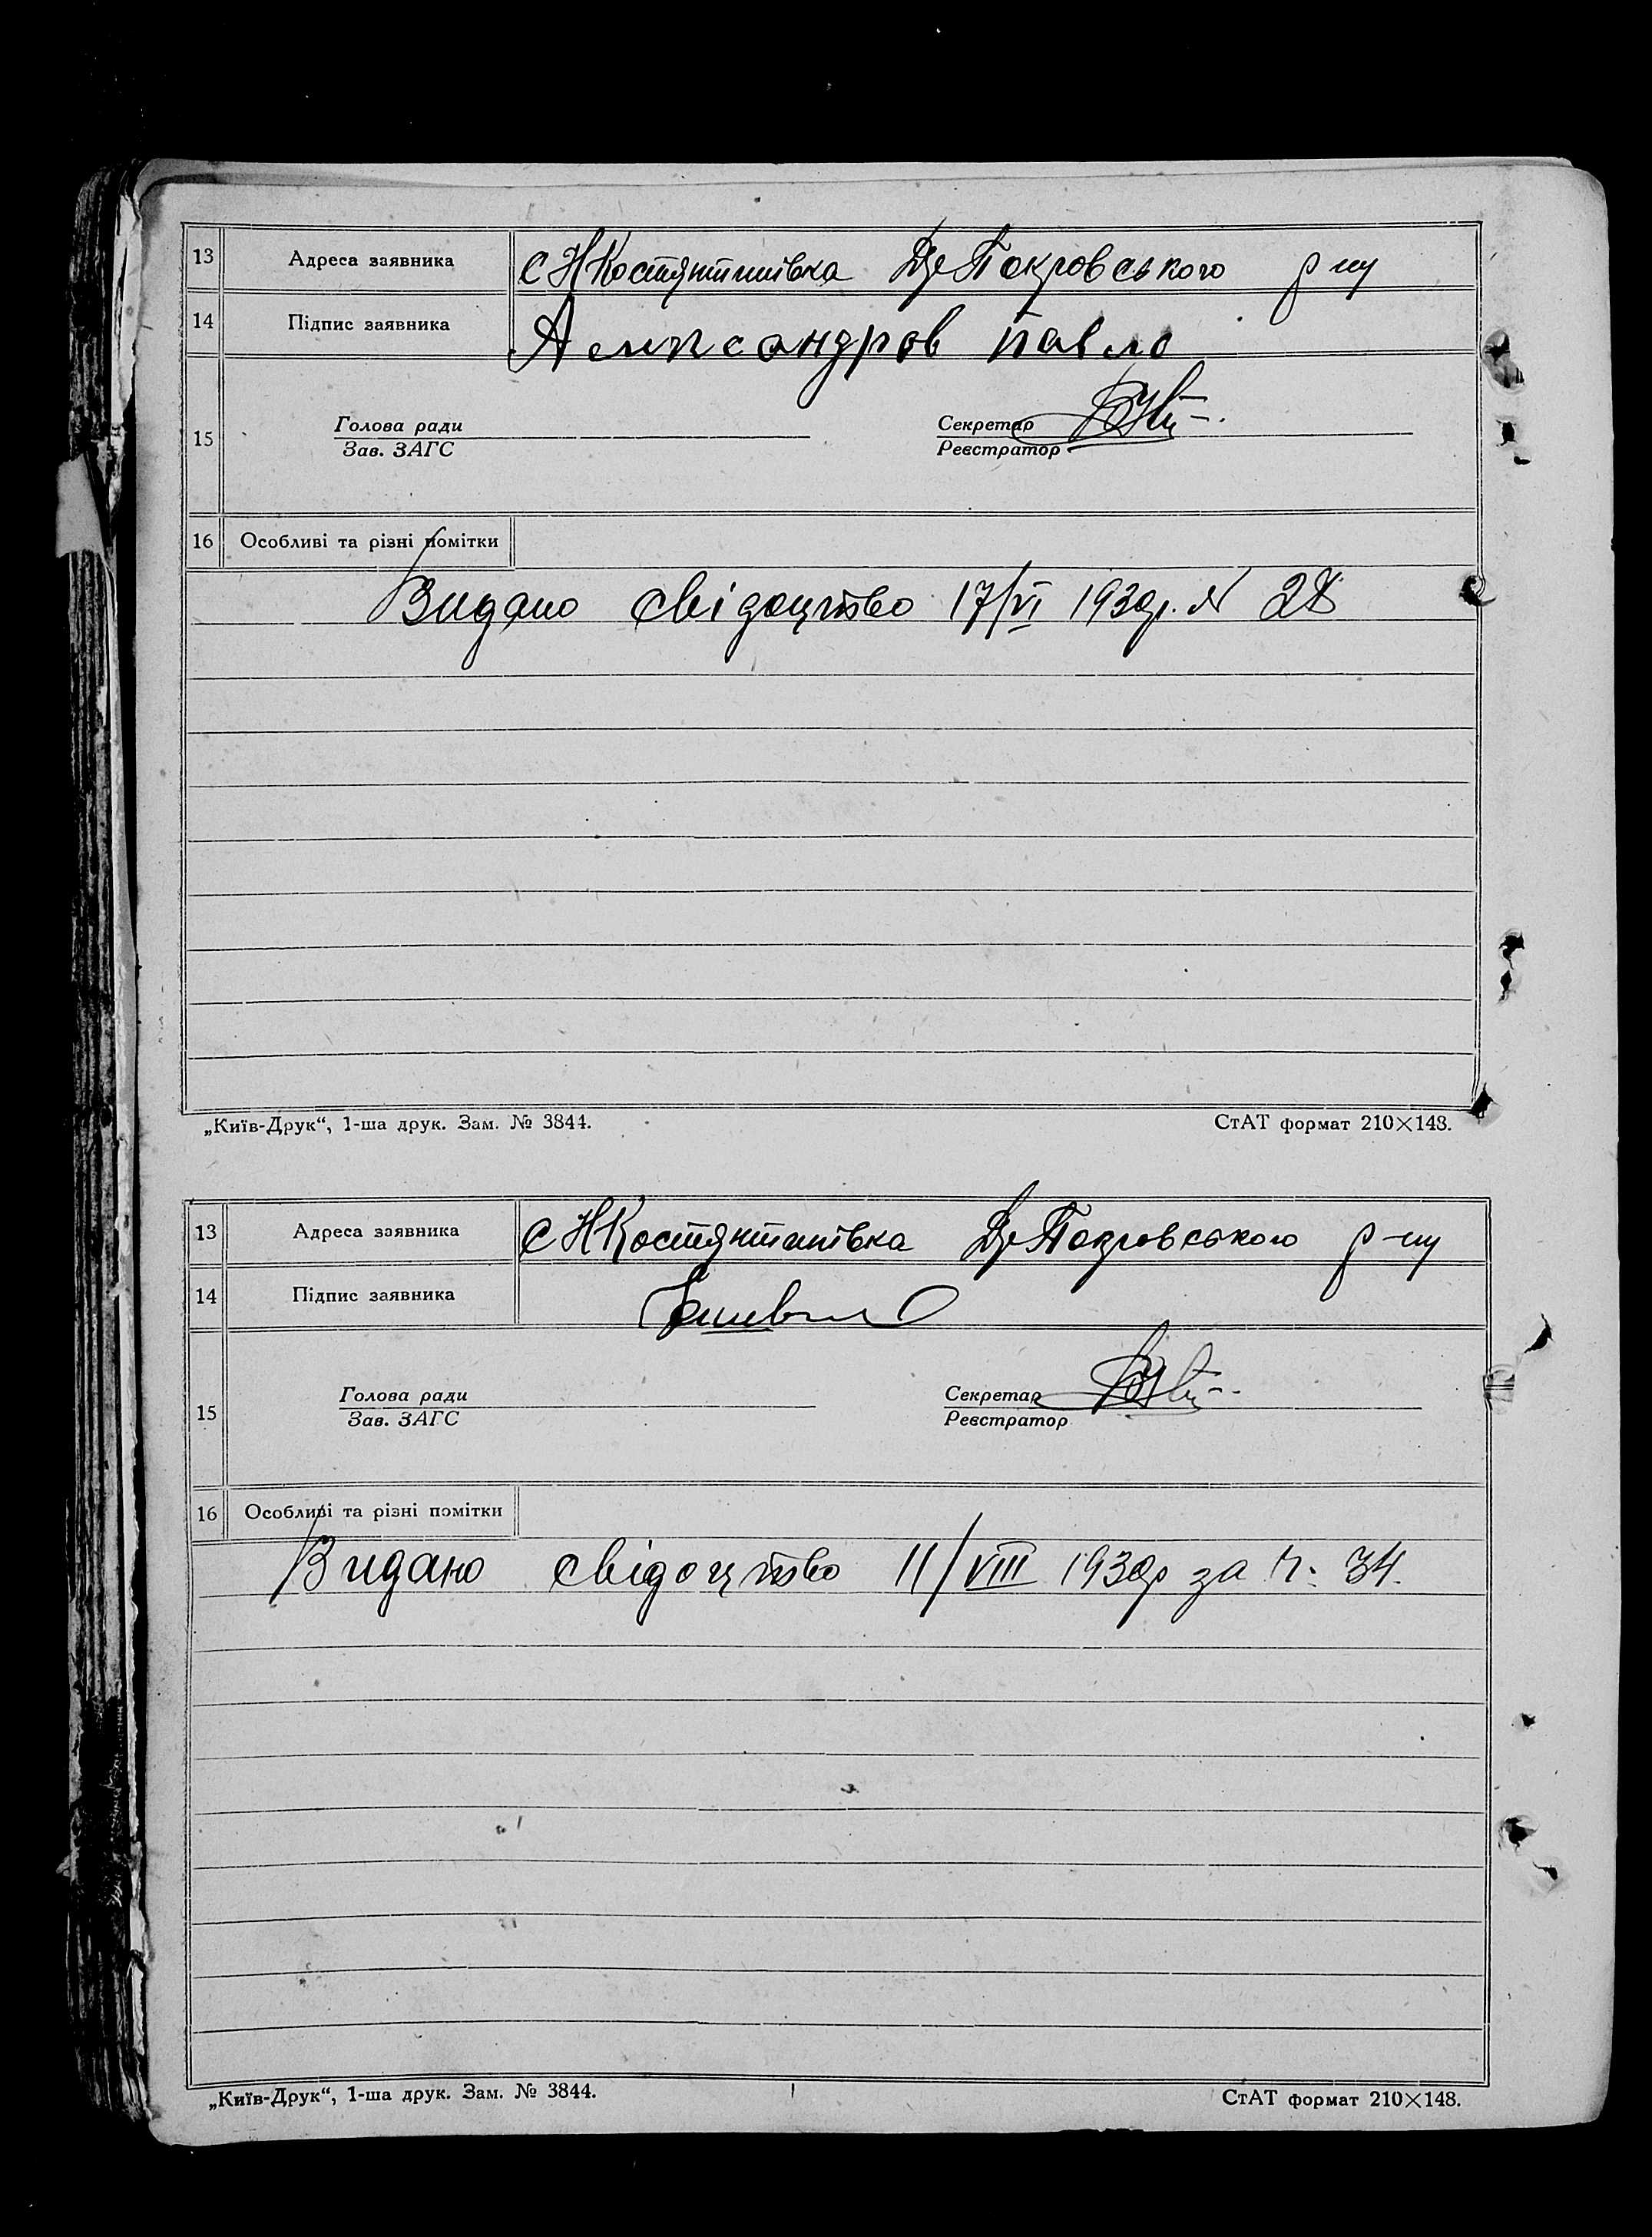 13 Адреса заявника с НКостянтинівка Де Покровського р-ну
14 Підпис заявника Александров Павло
15 Голова ради Секретар
Зав. ЗАГС Реєстратор
16 Особливі та різні помітки
Видано свідоцтво 17/VI 1930р. № 28
„Київ-Друк“, 1-ша друк. Зам. № 3844. СтАТ формат 210×148.
13 Адреса заявника с НКостянтинівка Де Покровського р-ну
14 Підпис заявника
15 Голова ради Секретар
Зав. ЗАГС Реєстратор
16 Особливі та різні помітки
Видано свідоцтво 11/VIII 1930р за ч. 34.
„Київ-Друк“, 1-ша друк. Зам. № 3844. СтАТ формат 210×148.